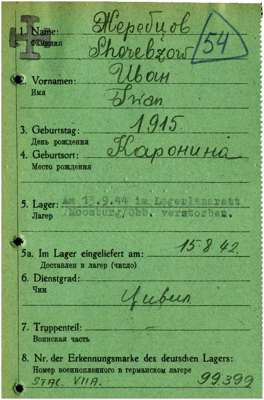 Жеребцов
1. Name: Sherebzow
Фамилия
54
Иван
2. Vornamen: Iwan
Имя
3. Geburtstag: 1915.
День рождения
4. Geburtsort: Каронина
Место рождения
5. Lager: Am 13.9.44 im Lagerlazarett
Лагер /Moosburg/Obb. verstorben.
5a. Im Lager eingeliefert am: 15 8 42.
Доставлен в лагер (число)
6. Dienstgrad:
Чин Цивил
7. Truppenteil: —
Воинская часть
8. Nr. der Erkennungsmarke des deutschen Lagers:
Номер военнопленного в германском лагере
STAL. VIIA. 99399